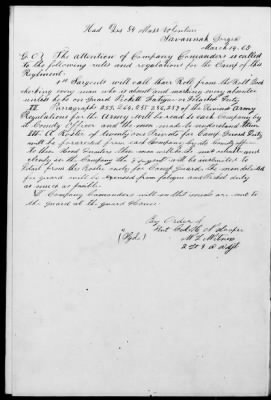 Had Qrs 54 Mass Volunteers
Savannah Georgia
March 14. 65
G. O. } The attention of Company Commanders is called
to the following orders and regulations for the Camp of this
Regiment.
1st Sargents will call their Roll from the Roll Book
checking every man who is absent and marking every absentee
unless he be on Guard Picket Fatigue or Detached Duty
II Paragraphs 253, 254, 257 of the Revised Army
Regulations for the Army will be read to each Company by
it Comdg Officer and the men made to understand them
III. A Roster of twenty one Privates for Camp Guard Duty
will be forwarded from each Company by its Comdg officer
to these Head Quarters. These men
in the Company the 1st Sergeant will be instructed to
Detail from this Roster only for Camp Guard. The men detailed
for guard will be excused from fatigue and Picket duty
as much as possible
Company Commanders will see that meals are sent to
the guard at the guard House.
By Order of
Lieut Col. H. N. Hooper
(Sgd.)
2 Lt & A Adjt